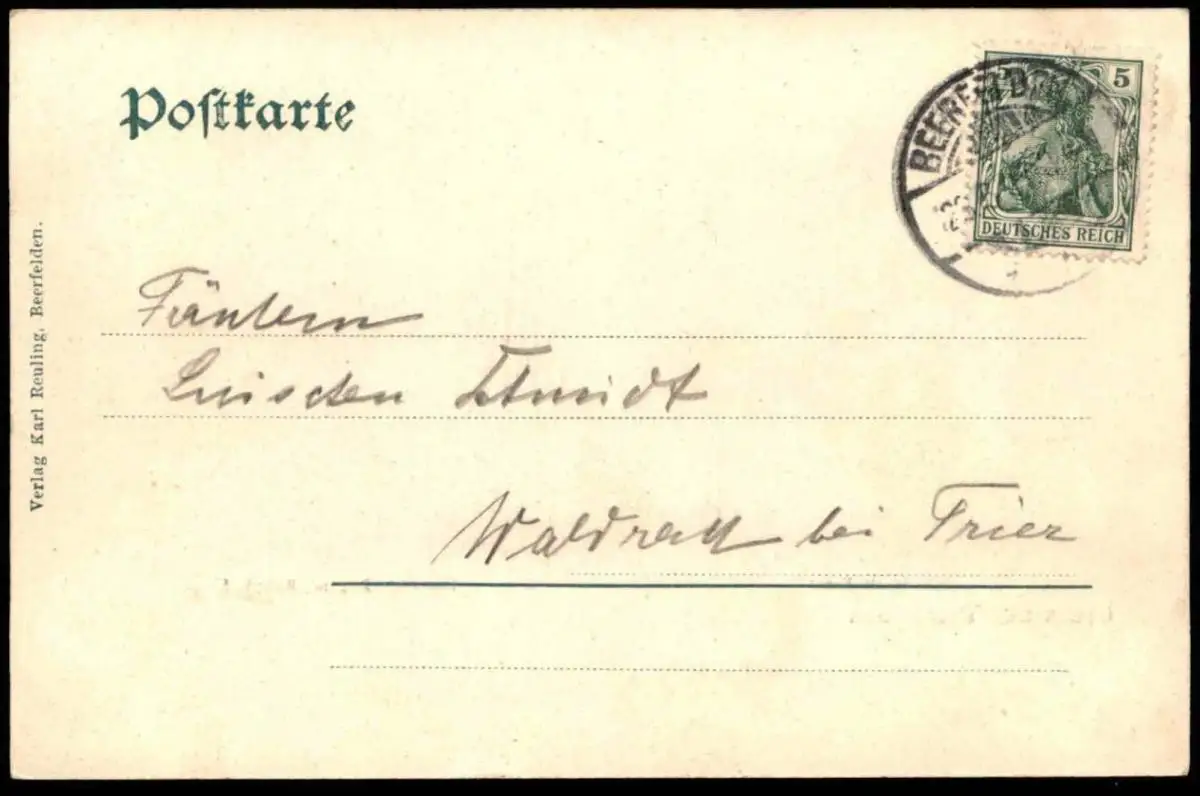 Poſtkarte
5
BEERFELDEN
DEUTSCHES REICH
Verlag Karl Reuling, Beerfelden.
Fräulein
Luischen Schmidt
bei Trier